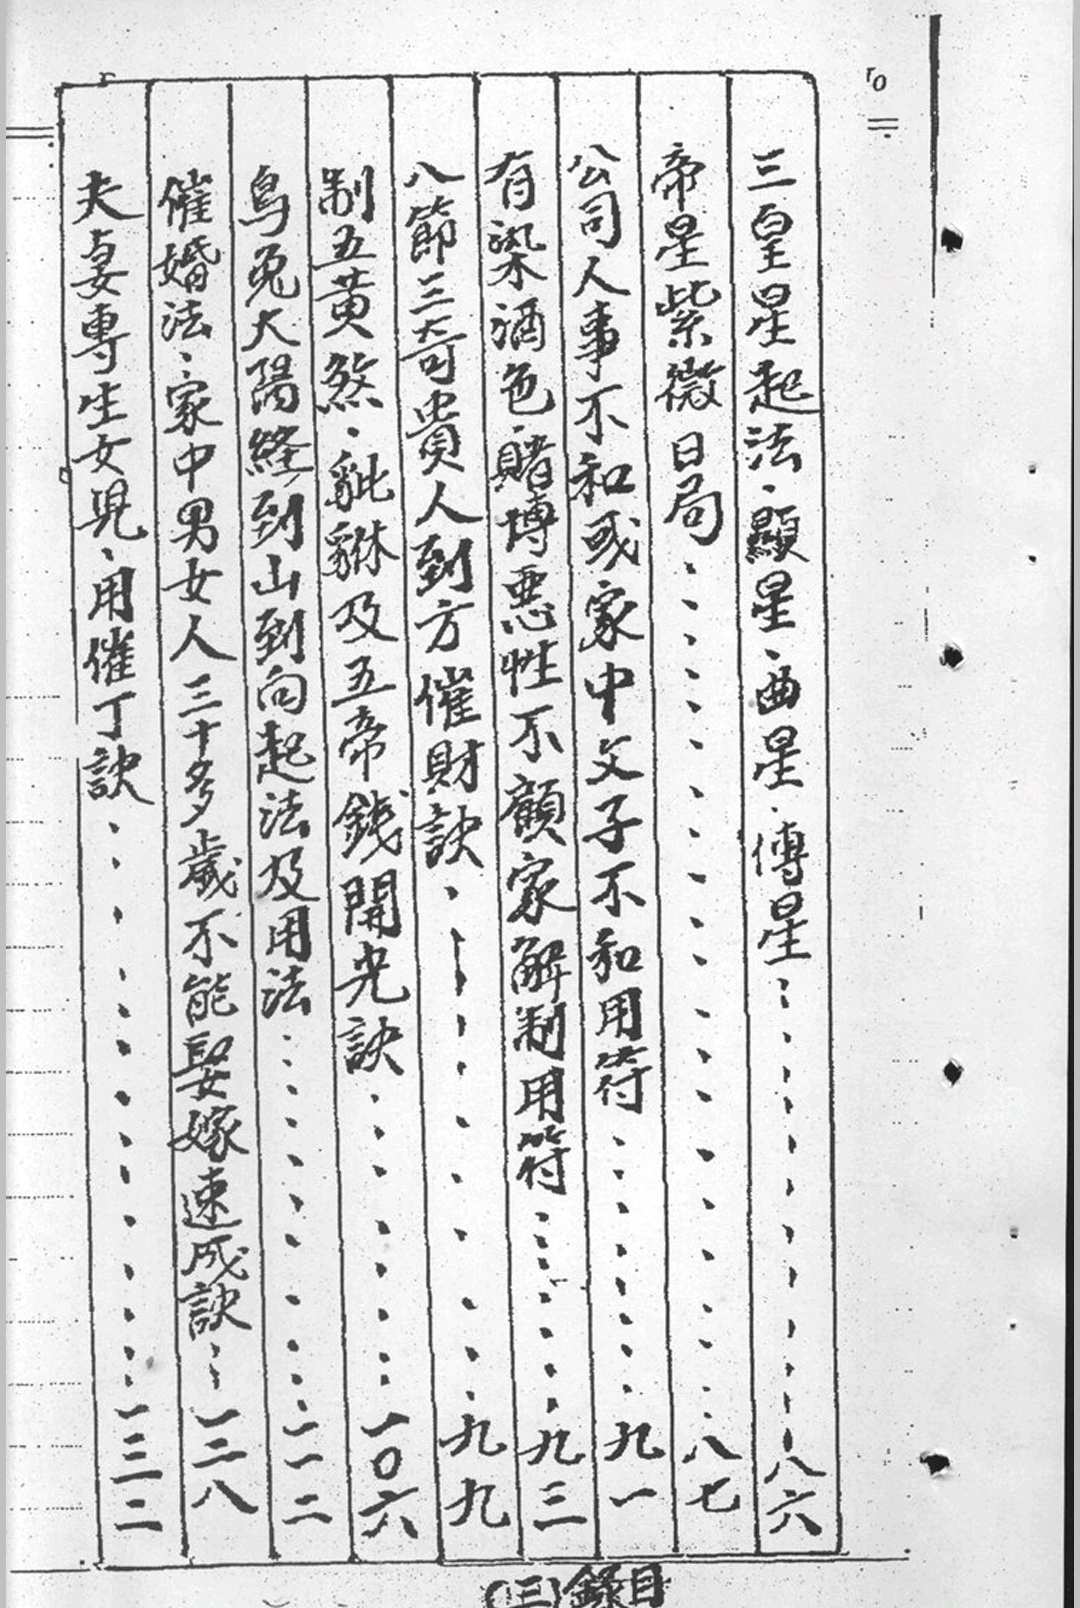 三皇星起法、顯星、曲星、傅星……八六
帝星紫微日局……八七
公司人事不和或家中父子不和用符……九一
有染酒色、賭博惡性不顧家解制用符……九三
八節三奇貴人到方催財訣……九九
制五黃煞、貔貅及五帝錢開光訣……一〇六
烏兔太陽經到山到向起法及用法……一一二
催婚法、家中男女人三十多歲不能娶嫁速成訣……一二八
夫妻專生女兒、用催丁訣……一三二
(三)錄目